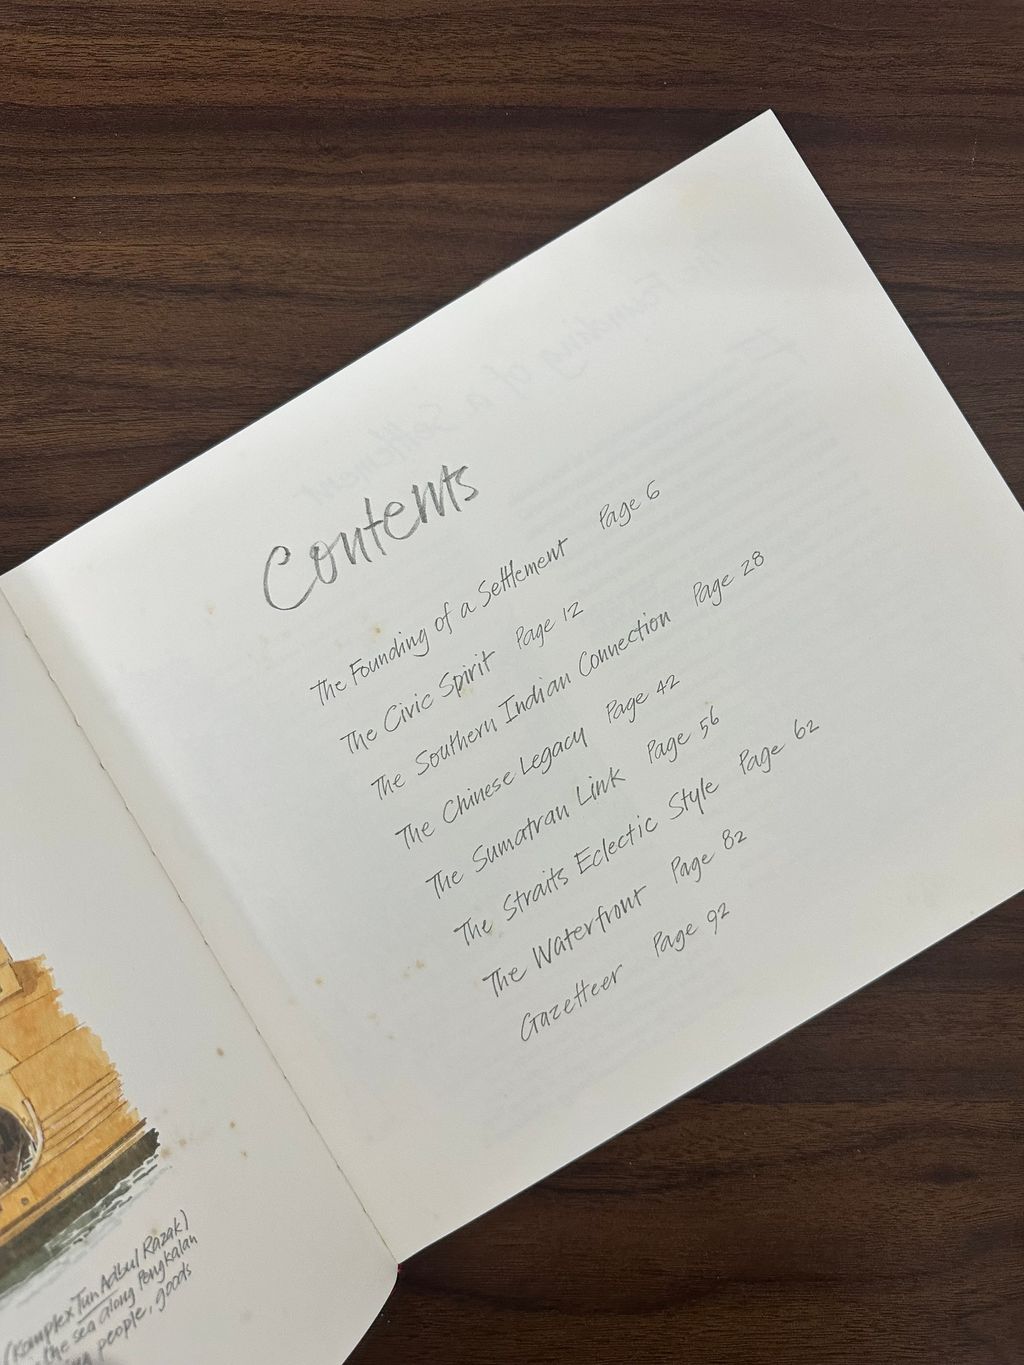 Contents
The Founding of a Settlement Page 6
The Civic Spirit Page 12
The Southern Indian Connection Page 28
The Chinese Legacy Page 42
The Sumatran Link Page 56
The Straits Eclectic Style Page 62
The Waterfront Page 82
Gazetteer Page 92
(Komplex Tun Adbul Razak)
the sea along Pengkalan
people, goods
The Founding of a Settlement